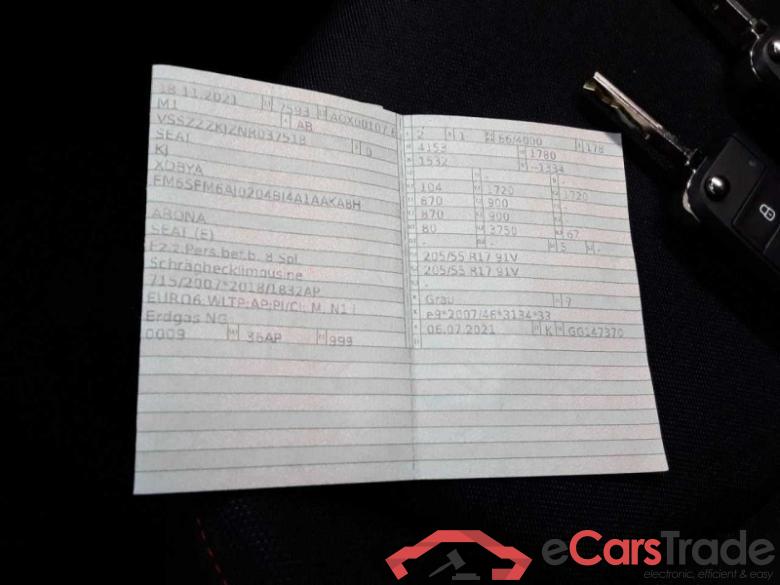 18.11.2021 7593 AOX00107
M1 AB
VSSZZZKJZNR037518 0
SEAT
KJ
XDBYA
FM6SFM6AJ0204BI4A1AAKABH
ARONA
SEAT (E)
Fz.z.Pers.bef.b. 8 Spl.
Schräghecklimousine
715/2007*2018/1832AP
EURO6;WLTP;AP;PI/CI; M, N1 I
Erdgas NG
0009 36AP 999
2 1 66/4000 178
4153 1780
1532 1334
- -
104 1720 1720
870 900
870 900
80 3750 67
- - 5 -
205/55 R17 91V
205/55 R17 91V
-
Grau 7
e9*2007/46*3134*33
06.07.2021 K GG147370
eCarsTrade
electronic, efficient & easy